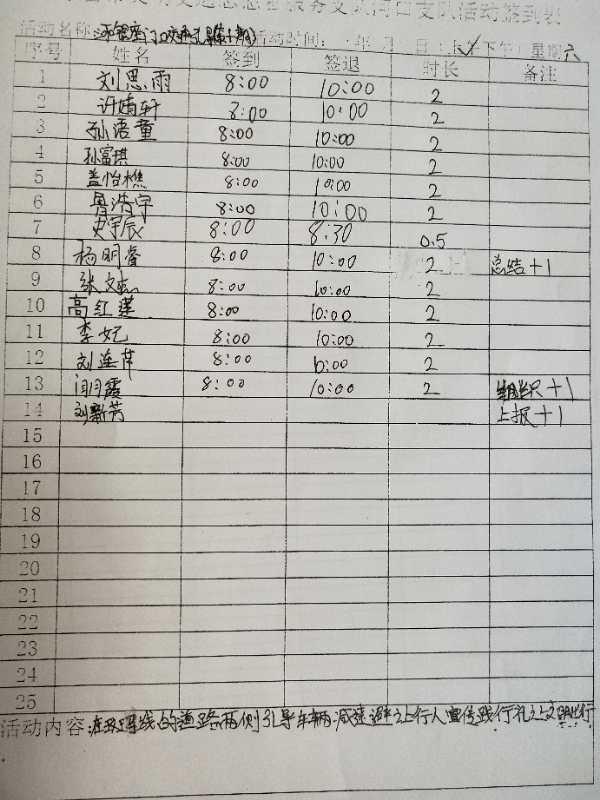 服务支队河口支队活动签到表
活动名称: 活动时间: 年 月 日(上午 下午)星期六
序号 姓名 签到 签退 时长 备注
1 刘思雨 8:00 10:00 2
2 许靖轩 8:00 10:00 2
3 孙语童 8:00 10:00 2
4 孙富琪 8:00 10:00 2
5 盖怡樵 8:00 10:00 2
6 鲁浩宇 8:00 10:00 2
7 史宇辰 8:00 8:30 0.5
8 杨明睿 8:00 10:00 2 总结+1
9 张文 8:00 10:00 2
10 高红莲 8:00 10:00 2
11 李妃 8:00 10:00 2
12 刘连萍 8:00 10:00 2
13 闫月霞 8:00 10:00 2 组织+1
14 刘新芳 上报+1
15
16
17
18
19
20
21
22
23
24
25
活动内容:在斑马线的道路两侧引导车辆减速避让行人宣传践行礼让文明出行